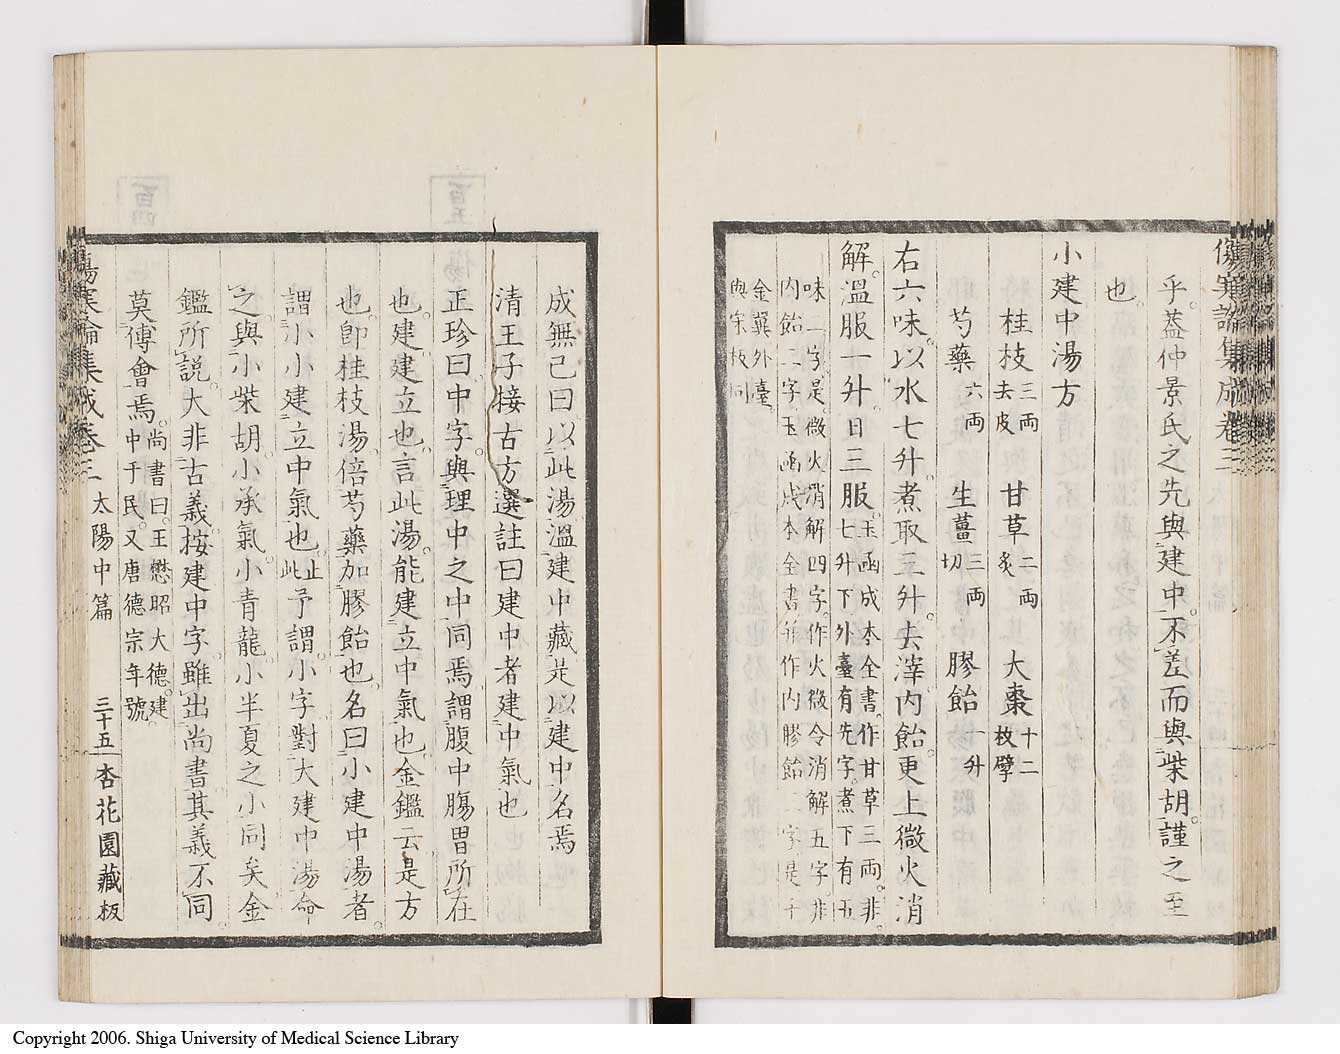 傷寒論集成卷三
乎蓋仲景氏之先與建中不差而與柴胡謹之至
也
小建中湯方
桂枝三両去皮 甘草二両炙 大棗十二枚擘
芍藥六両 生薑三両切 膠飴一升
右六味以水七升煮取三升去滓內飴更上微火消
解溫服一升日三服玉函成本全書作甘草三両非七升下外臺有先字煮下有五
味二字是微火消解四字作火微令消解五字非內飴二字玉函成本全書並作內膠飴三字是千
金翼外臺與宋板同
成無己曰以此湯溫建中藏是以建中名焉
清王子接古方選註曰建中者建中氣也
正珍曰中字與理中之中同焉謂腹中腸胃所在
也建建立也言此湯能建立中氣也金鑑云是方
也卽桂枝湯倍芍藥加膠飴也名曰小建中湯者
謂小小建立中氣也止此予謂小字對大建中湯命
之與小柴胡小承氣小青龍小半夏之小同矣金
鑑所說大非古義按建中字雖出尚書其義不同
莫傅會焉尚書曰王懋昭大德建中于民又唐德宗年號
傷寒論集成卷三 太陽中篇 三十五 杏花園藏板
Copyright 2006. Shiga University of Medical Science Library